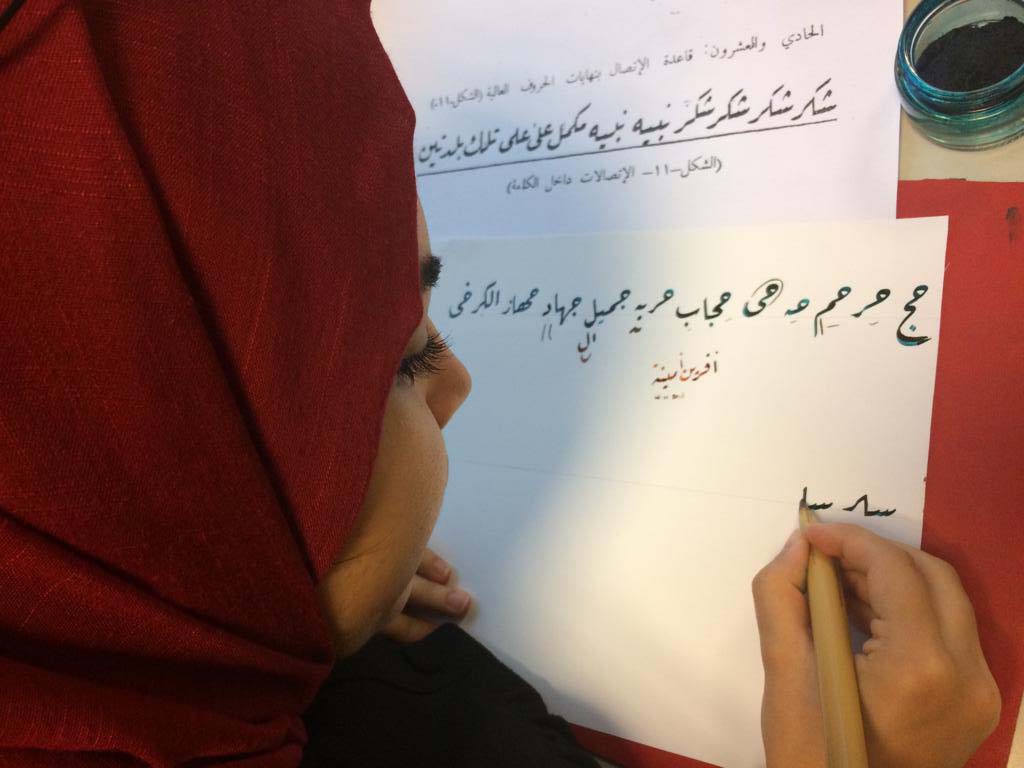 الحادي والعشرون: قاعدة الإتصال بنهايات الحروف العالية (الشكل-11-)
شكر شكر شكر شكر نبيه نبيه مكمل على على تلك بلدتين
(الشكل-١١- الإتصالات داخل الكلمة)
حج حر حم حه حى حجاب حربه جميل جهاد جهاز الكرخي
ال
آفرين أمينة
سلر سلا